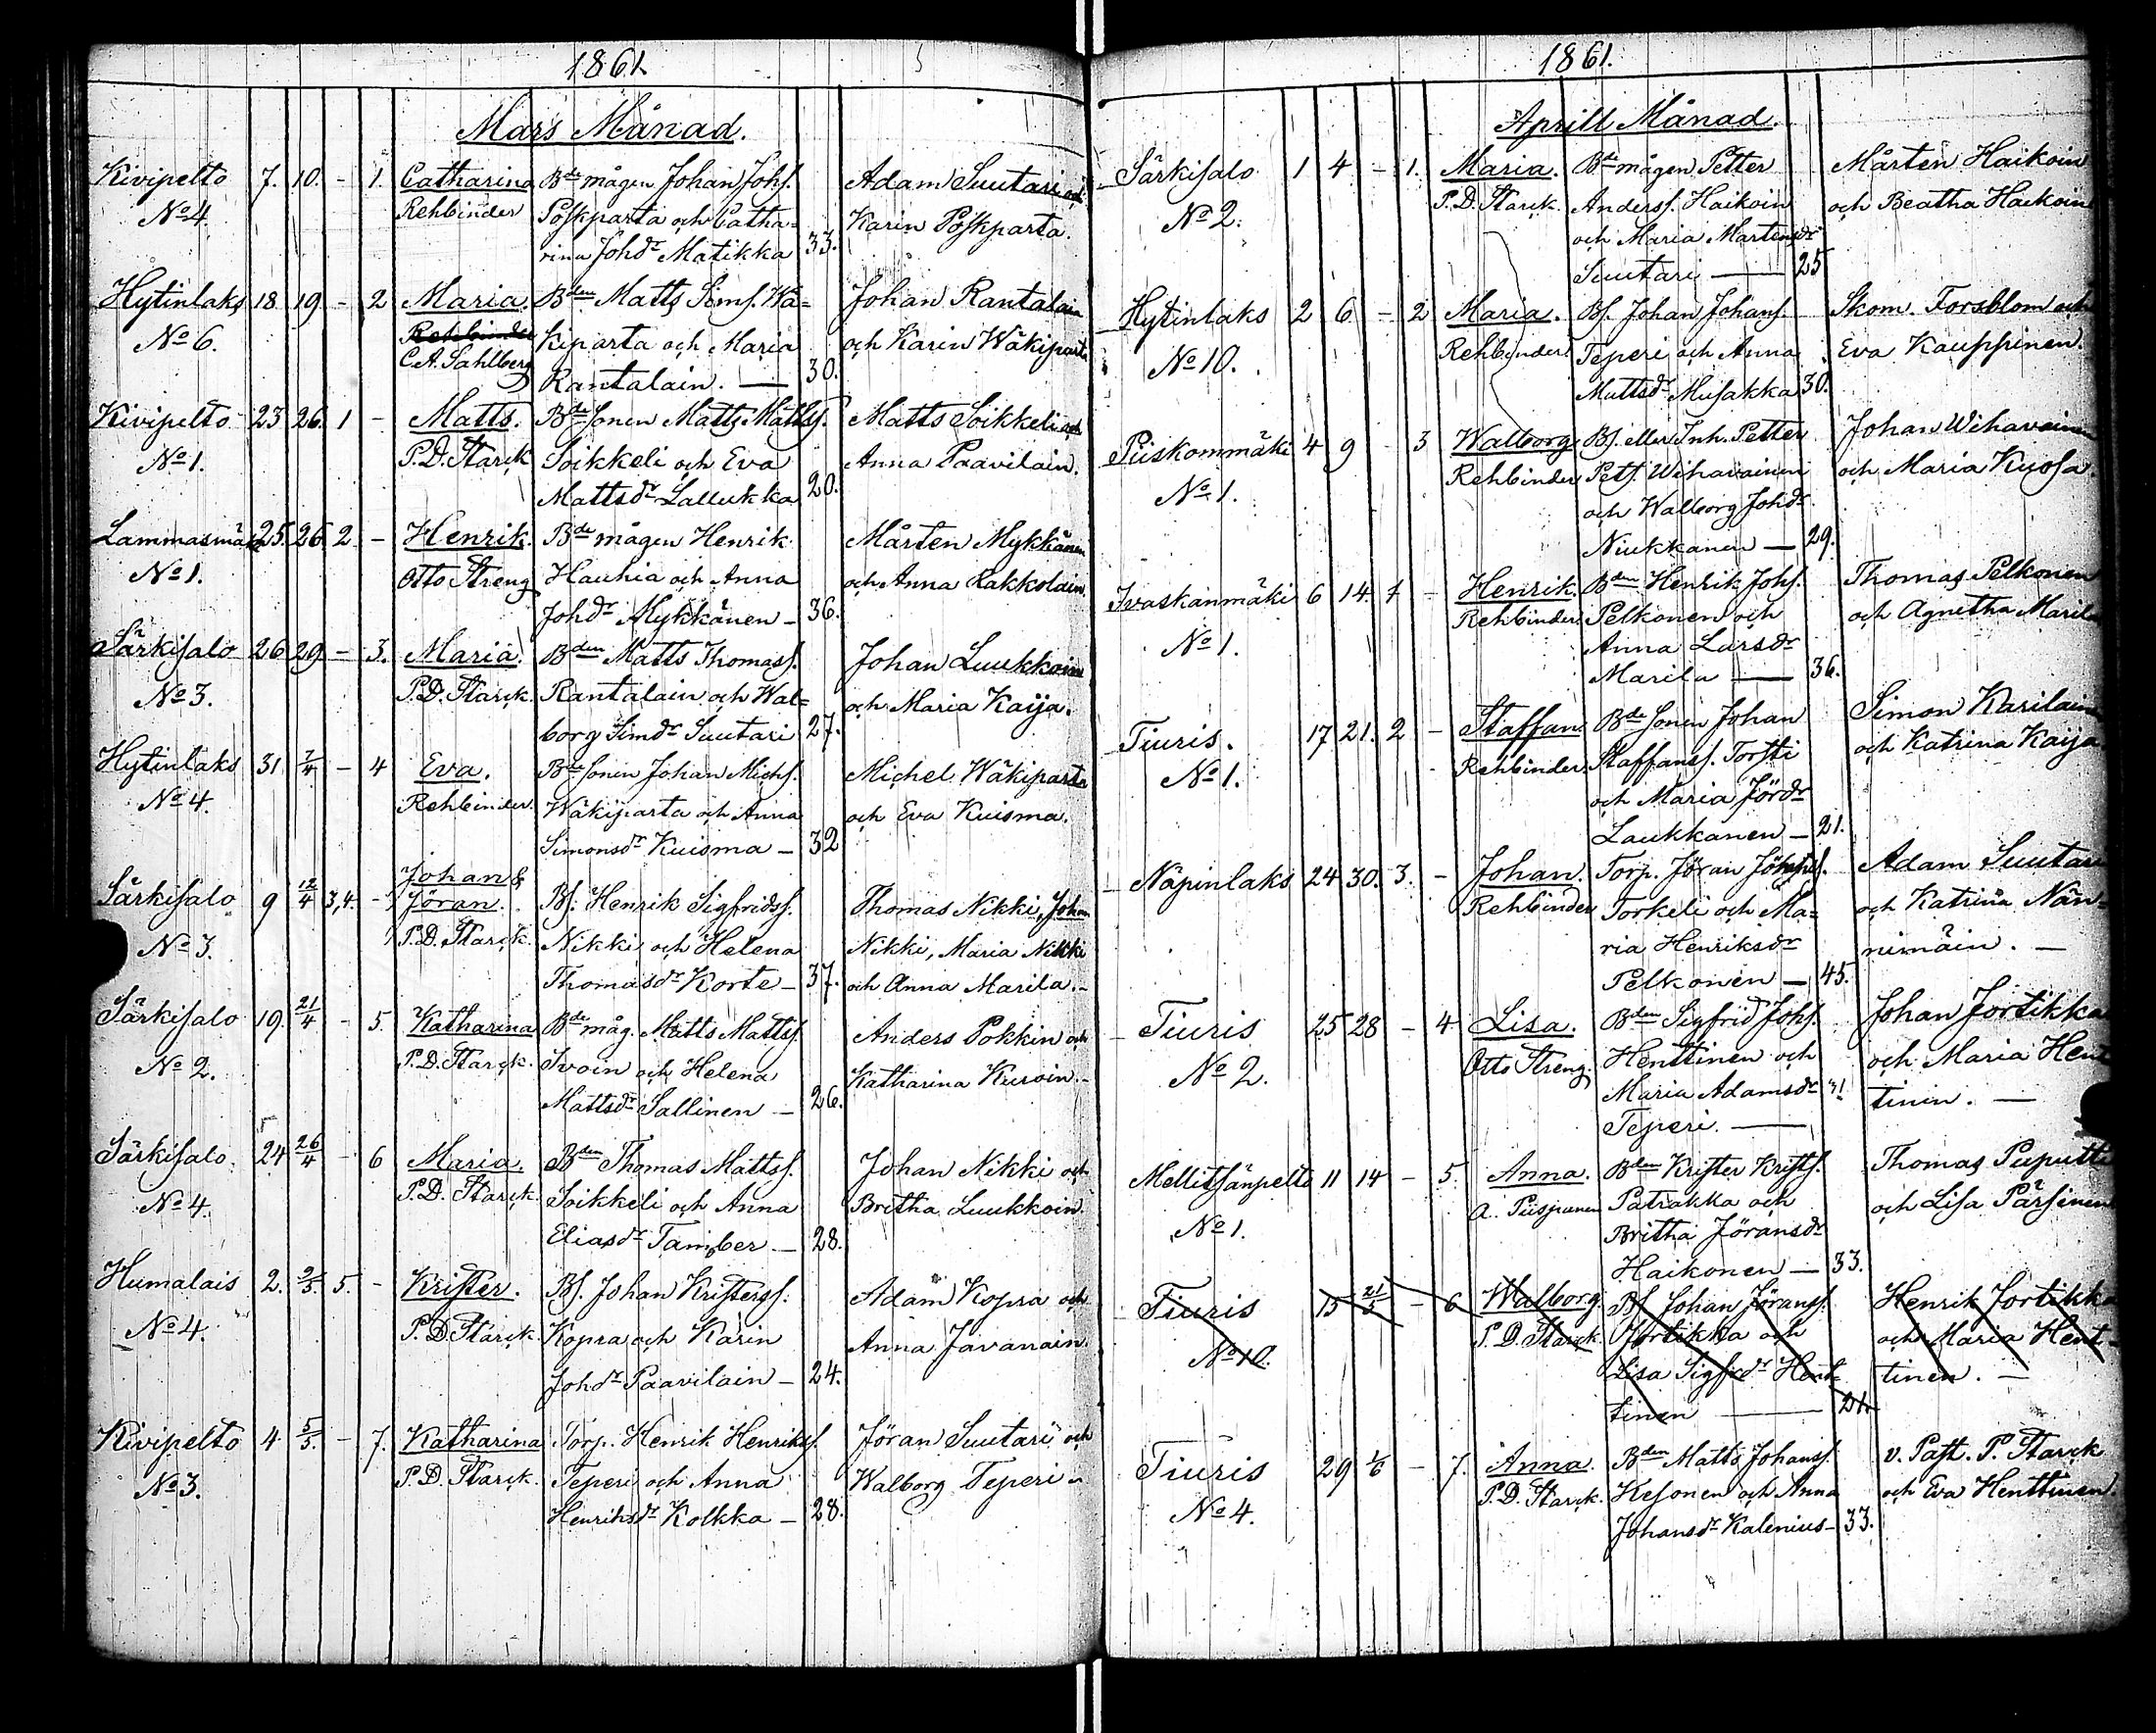 1861.
Mars Månad.
Kivipelto 7. 10. - 1. Catharina Bde mågen Johan Johs. Adam Suutari och
No 4. Rehbinder Poskparta och Catha- Karin Poskparta.
rina Johdr Matikka 33.
Hytinlaks 18 19 - 2 Maria. Bden Matts Sims. Wä- Johan Rantalain
No 6. Rehbinder kiparta och Maria och Karin Wäkiparta
C.A. Sahlberg Rantalain. — 30.
Kivipelto 23 26. 1 - Matts. Bde sonen Matts Mattss. Matts Soikkeli och
No 1. P.D. Starck Soikkeli och Eva Anna Paavilain.
Mattsdr Lallukka 20.
Lammasmäki 25. 26 2 - Henrik. Bde mågen Henrik Mårten Mykkänen
No 1. Otto Streng Hauhia och Anna och Anna Rakkolain.
Johdr Mykkänen - 36.
Särkisalo 26 29 - 3. Maria. Bden Matts Thomass. Johan Luukkoin
No 3. P.D. Starck. Rantalain och Wal- och Maria Kaija.
borg Simdr Suutari 27.
Hytinlaks 31 7/4 - 4 Eva. Bde sonen Johan Michs. Michel Wäkiparta
No 4. Rehbinder. Wäkiparta och Anna och Eva Kuisma.
Simonsdr Kuisma - 32
Johan &
Särkisalo 9 12/4 3,4. - Jöran. Bs. Henrik Sigfridss. Thomas Nikki, Johan
No 3. P.D. Starck. Nikki och Helena Nikki, Maria Nikki
Thomasdr Korte - 37. och Anna Marila. -
Särkisalo 19. 21/4 - 5. Katharina Bde måg. Matts Mattss. Anders Pokkin och
No 2. P.D. Starck. Ivoin och Helena Katharina Kuroin. -
Mattsdr Sallinen - 26.
Särkisalo. 24 26/4 - 6 Maria. Bden Thomas Mattss. Johan Nikki och
No 4. P.D. Starck. Soikkeli och Anna Britha Luukkoin
Eliasdr Tamber - 28.
Humalais 2. 9/5. 5. - Krister. Bs. Johan Kristerss. Adam Kopra och
No 4. P.D. Starck. Kopra och Karin Anna Javanain.
Johdr Paavilain - 24.
Kivipelto 4 5/5. - 7. Katharina Torp. Henrik Henrikss. Jöran Suutari och
No 3. P.D. Starck. Teperi och Anna Walborg Teperi
Henriksdr Kolkka - 28.
1861.
Aprill Månad.
Särkisalo 1 4 - 1. Maria. Bde mågen Petter Mårten Haikoin
No 2. P.D. Starck. Anderss. Haikoin och Beatha Haikoin
och Maria Martensdr
Suutari — 25
Hytinlaks 2 6 - 2 Maria. Bs. Johan Johans. Skom. Forsblom och
No 10. Rehbinder Teperi och Anna Eva Kauppinen.
Mattsdr Musakka 30.
Piiskommäki 4 9 - 3 Walborg Bs. eller Inh. Petter Johan Wihavainen
No 1. Rehbinder Pets. Wihavainen och Maria Kuosa.
och Walborg Johdr
Niukkanen — 29.
Ivaskanmäki 6 14. 1 - Henrik. Bden Henrik Johs. Thomas Pelkonen
No 1. Rehbinder. Pelkonen och och Agnetha Marila
Anna Larsdr
Marila — 36.
Tiuris. 17 21. 2 - Staffan. Bde sonen Johan Simon Karilain
No 1. Rehbinder. Staffanss. Torsti och Katrina Kaija
och Maria Jördr
Laukkanen - 21.
Näpinlaks 24 30. 3. - Johan. Torp. Jöran Adam Suutari
Rehbinder Torkeli och Ma- och Katrina Nän-
ria Henriksdr nimäin. -
Pelkonen - 45.
Tiuris 25 28 - 4 Lisa. Bden Sigfrid Johs. Johan Jortikka
No 2. Otto Streng. Henttinen och och Maria Hent
Maria Adamsdr 31 tinin. -
Teperi. —
Mellitsänpelto 11 14 - 5. Anna. Bden Krister Krists. Thomas Puputti
No 1. A. Piispanen Patrakka och och Lisa Pärsinen
Britha Jöransdr
Haikonen — 33.
Tiuris 15 21/5 - 6 Walborg. Bs. Johan Jöranss. Henrik Jortikka
No 10. P.D. Starck. Jortikka och och Maria Hent-
Lisa Sigfrdr Hent- tinen. -
tinen — 21.
Tiuris 29 1/6 - 7. Anna. Bden Matts Johanss. v. Past. P. Starck
No 4. P.D. Starck. Kesonen och Anna och Eva Henttinen.
Johansdr Kalenius - 33.